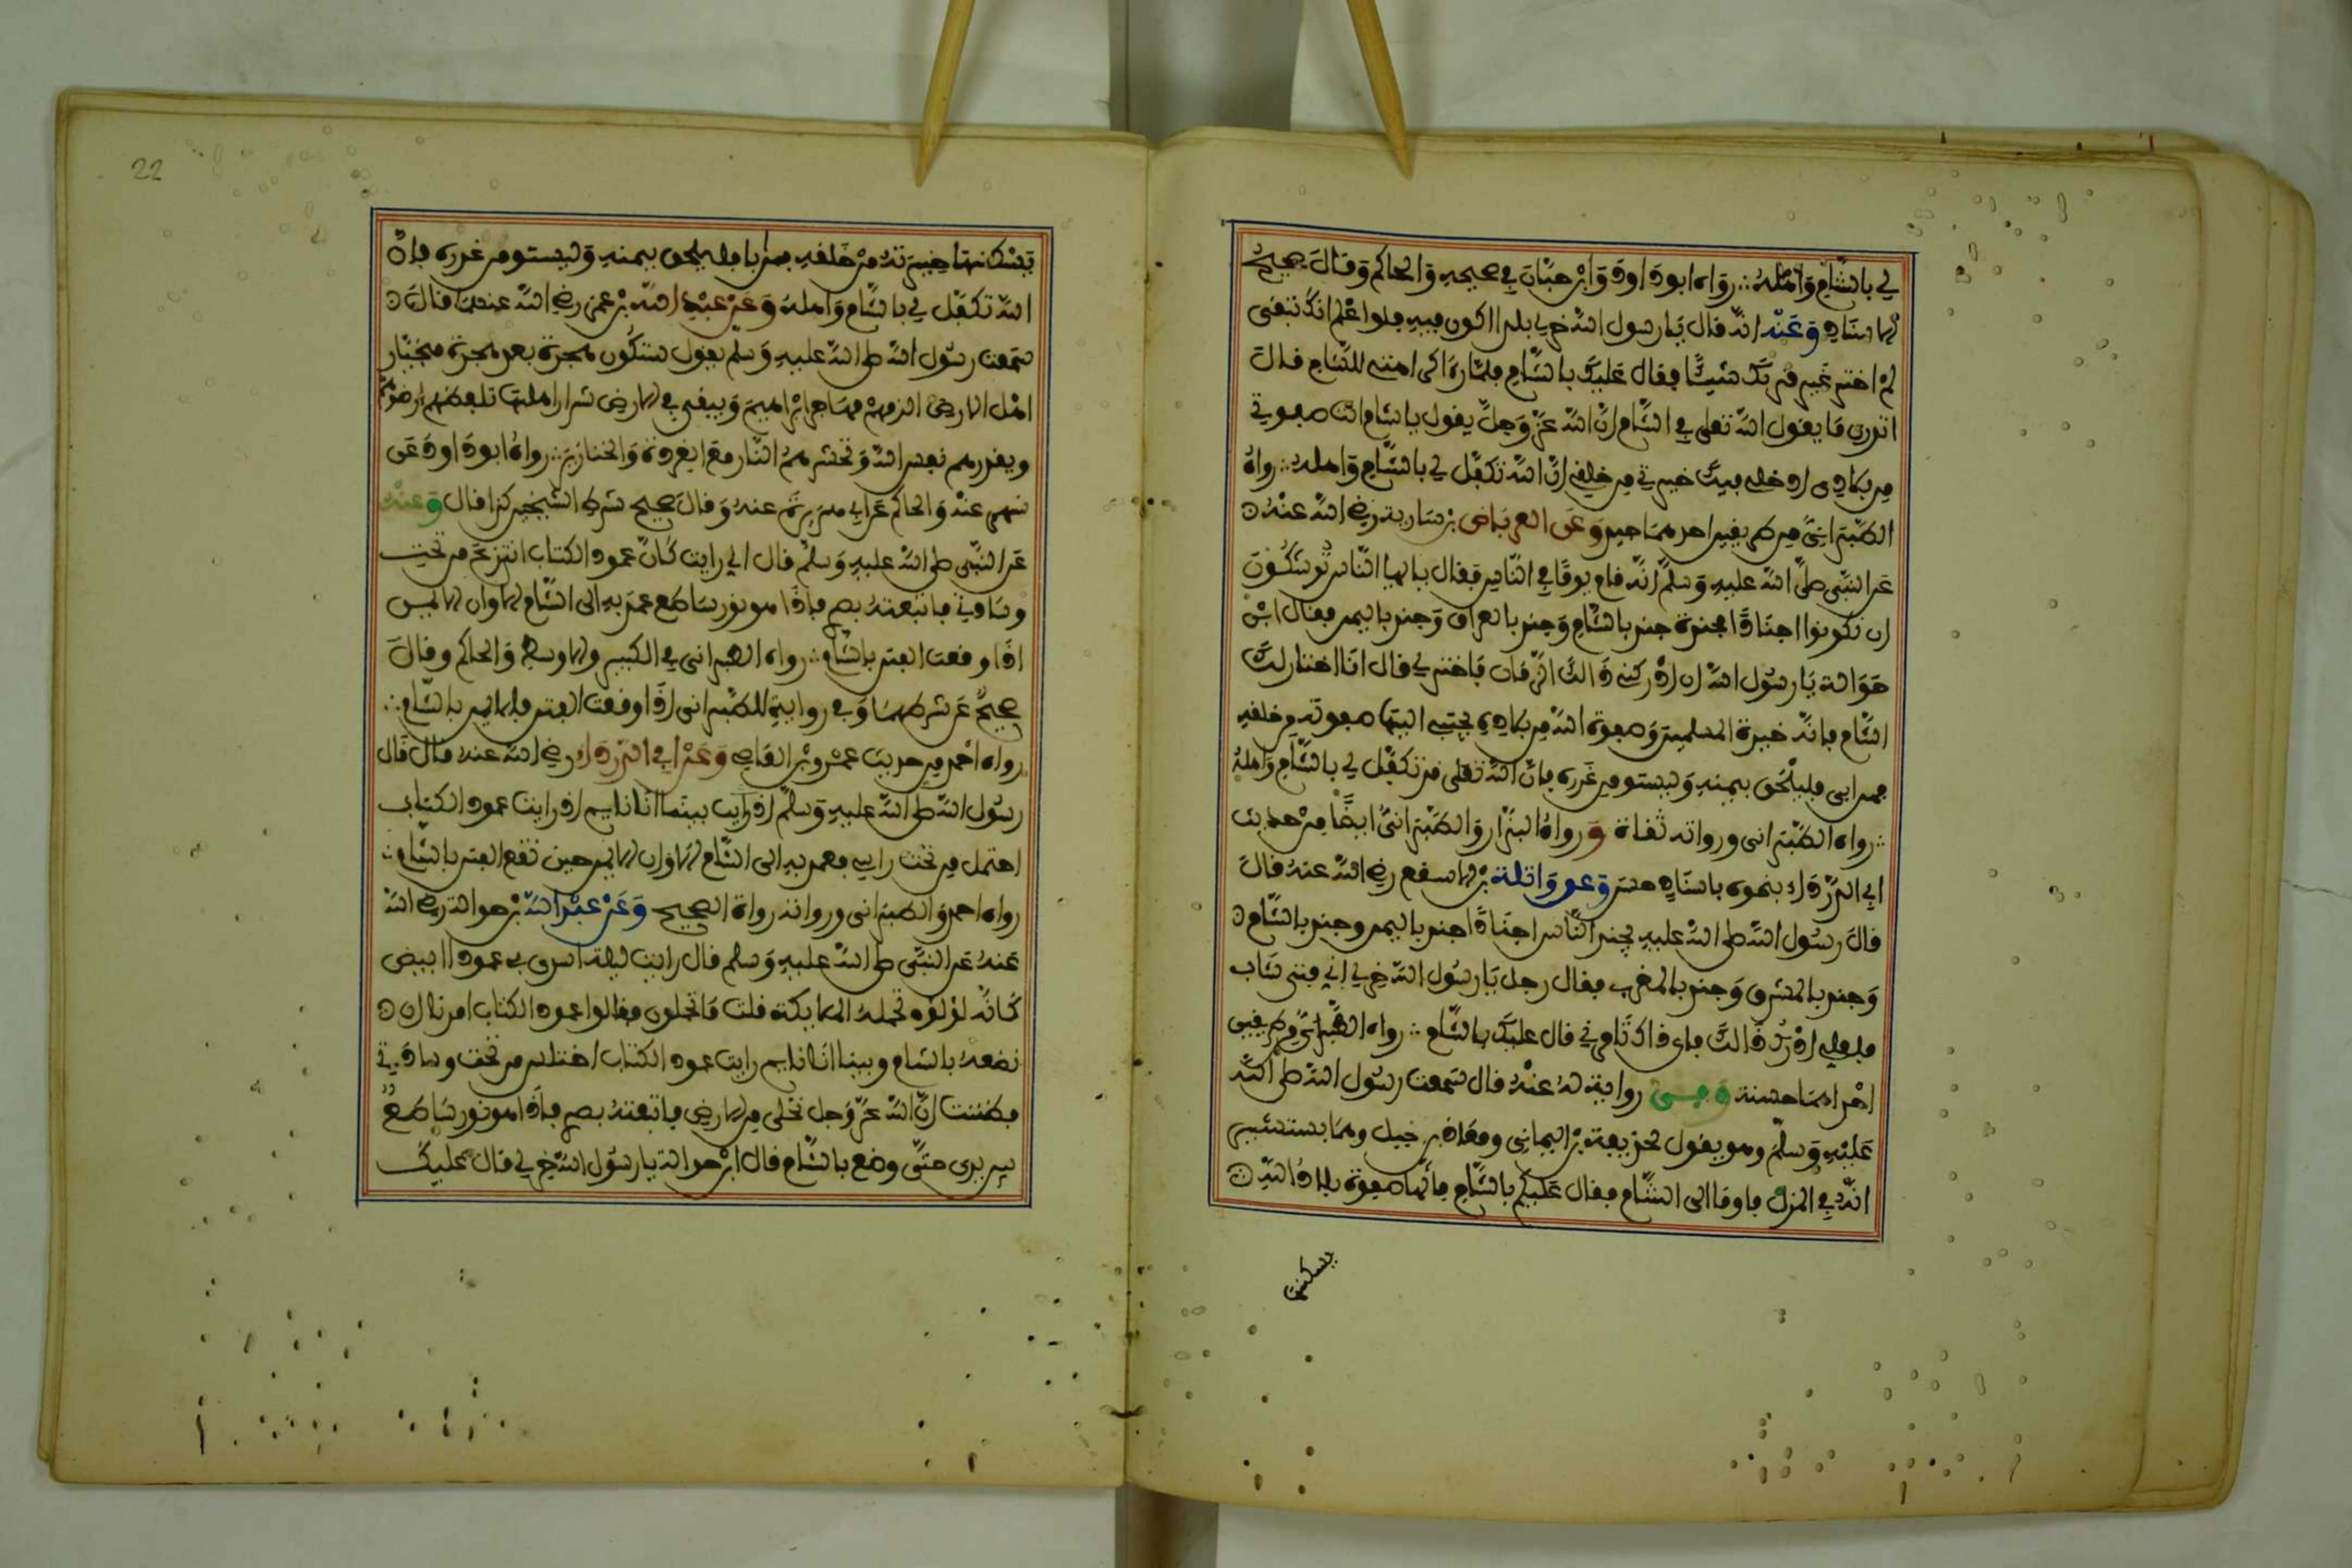 لي بالشام وأهله ∴ رواه ابو داود وابن حبان في صحيحه والحاكم وقال صحيح
الاسناد وعنه انه قال يا رسول الله خر لي بلدا اكون فيه فلو اعلم انك تبقى
لم اختر عن قربك شيئا فقال عليك بالشام فلما راى كراهيتي للشام قال
اتدري ما يقول الله تعلى في الشام ان الله عز وجل يقول يا شام انت صفوتي
من بلادي ادخل فيك خيرتي من خلقي ان الله تكفل لي بالشام واهله ∴ رواه
الطبراني من طريقين احدهما جيد وعن العرباض بن سارية رضي الله عنه
عن النبي صلى الله عليه وسلم انه قام يوما في الناس فقال يا ايها الناس توشكون
ان تكونوا اجنادا مجندة جند بالشام وجند بالعراق وجند باليمن فقال ابن
حوالة يا رسول الله ان ادركني ذالك الزمان فاختر لي قال انا اختار لك
الشام فانه خيرة المسلمين وصفوة الله من بلاده يجتبي اليها صفوته من خلقه
فمن ابى فليلحق بيمنه وليستو من غدره فان الله تعلى قد تكفل لي بالشام واهله
∴ رواه الطبراني ورواته ثقاة ورواه البزار والطبراني ايضا من حديث
ابي الدرداء بنحوه باسناد حسن وعن واثلة بن الاسقع رضي الله عنه قال
قال رسول الله صلى الله عليه يجند الناس اجنادا جند باليمن وجند بالشام
وجند بالمشرق وجند بالمغرب فقال رجل يا رسول الله خر لي اني فتى شاب
فلعلي ادرك ذالك فاي ذاك تامرني قال عليك بالشام ∴ رواه الطبراني من طريقين
احداهما حسنة وفي رواية له عنه قال سمعت رسول الله صلى الله
عليه وسلم وهو يقول لحذيفة بن اليماني ومعاذ بن جبل وهما يستشيرانه
في المنزل فاوما الى الشام فقال عليكم بالشام فانها صفوة بلاد الله
يسكنها
22
يسكنها خيرته من خلقه فمن ابا فليلحق بيمنه وليستو من غدره فان
الله تكفل لي بالشام واهله وعن عبد الله بن عمر رضي الله عنهما قال
سمعت رسول الله صلى الله عليه وسلم يقول ستكون هجرة بعد هجرة فخيار
اهل الارض الزمهم مهاجر ابراهيم ويبقى في الارض شرار اهلها تلفظهم ارضوهم
ويقذرهم نفس الله وتحشرهم النار مع القردة والخنازير ∴ رواه ابو داود عن
شهر عنه والحاكم عن ابي هريرة عنه وقال صحيح شرط الشيخين كذا قال وعنه
عن النبي صلى الله عليه وسلم قال اني رايت كان عمود الكتاب انتزع من تحت
وسادتي فاتبعته بصري فاذا هو نور ساطع عمد به الى الشام الا وان الايمن
اذا وقعت الفتن بالشام ∴ رواه الطبراني في الكبير والاوسط والحاكم وقال
صحيح على شرطهما وفي رواية للطبراني اذا وقعت الفتن فالايمن بالشام ∴
رواه احمد من حديث عمرو بن العاص وعن ابي الدرداء رضي الله عنه قال قال
رسول الله صلى الله عليه وسلم اذ رايت بينما انا نايم اذ رايت عمود الكتاب
احتمل من تحت راسي فعمد به الى الشام الا وان الايمن حين تقع الفتن بالشام ∴
رواه احمد والطبراني ورواته رواة الصحيح وعن عبد الله بن حوالة رضي الله
عنه عن النبي صلى الله عليه وسلم قال رايت ليلة اسري بي عمودا ابيض
كانه لؤلؤة تحمله الملايكة فلت ما تحملون فقالوا عمود الكتاب امرنا ان
نضعه بالشام وبينا انا نايم رايت عمود الكتاب اختلس من تحت وسادتي
فظننت ان الله عز وجل تخلى من الارض فاتبعته بصري فاذا هو نور ساطع
بين يدي حتى وضع بالشام قال ابن حوالة يا رسول الله خر لي قال عليك